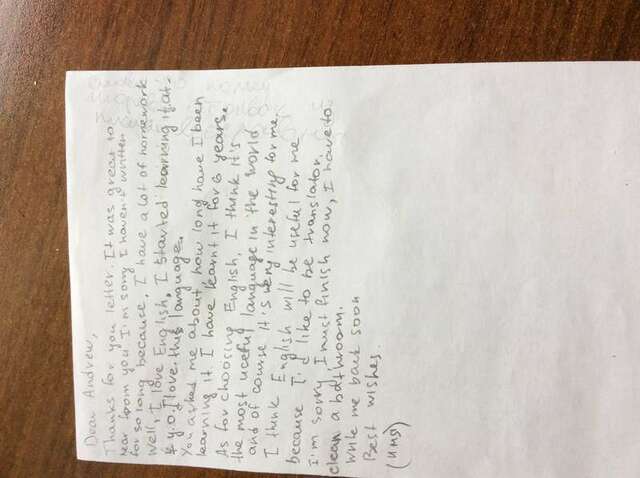 Dear Andrew,
Thanks for you letter. It was great to
hear from you I'm sorry I haven't written
for so long because, I have a lot of homework
Well, I love English, I started learning it at
6 y.o. I love this language.
You asked me about how long have I been
learning it I have learnt it for 6 years.
As for choosing English, I think it's
the most useful language in the world
and of course it's very interesting for me.
I think English will be useful for me
because I'd like to be translator.
I'm sorry, I must finish now, I have to
clean a bathroom.
Write me back soon
Best wishes.